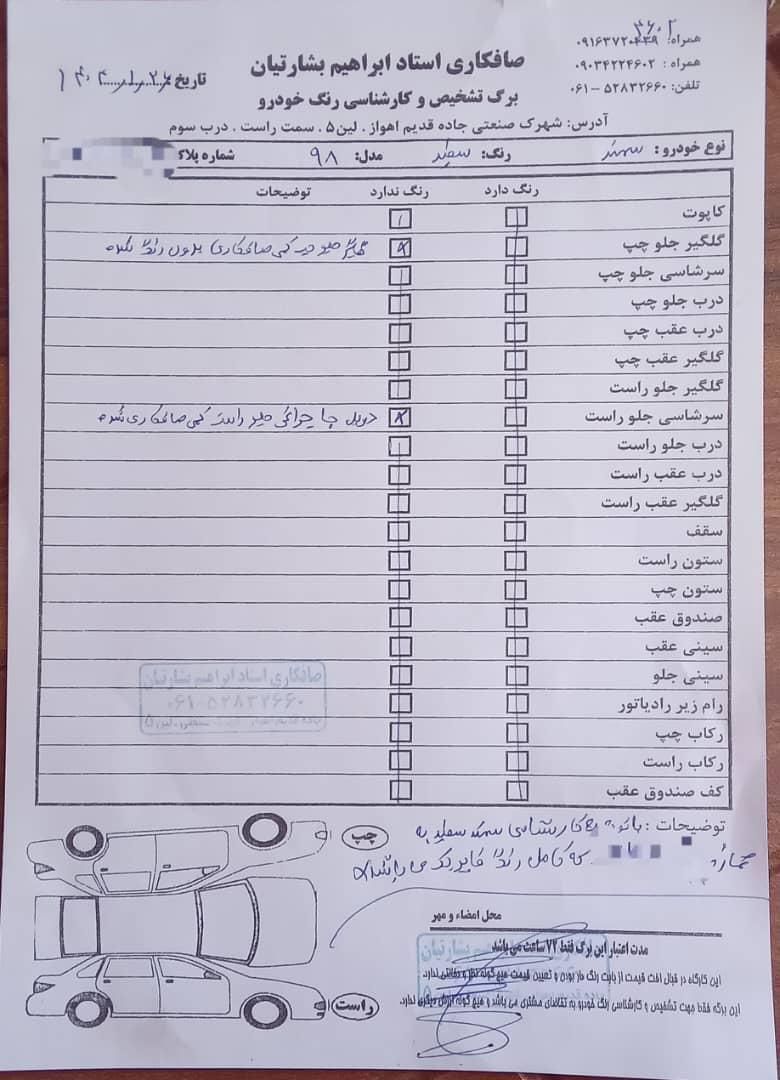 صافکاری استاد ابراهیم بشارتیان
برگ تشخیص و کارشناسی رنگ خودرو
همراه:
همراه: ۰۹۰۳۴۲۲۴۶۰۲
تلفن: ۵۲۸۳۲۶۶۰ – ۰۶۱
تاریخ
آدرس: شهرک صنعتی جاده قدیم اهواز . لین۵ . سمت راست . درب سوم
نوع خودرو: سمند رنگ: سفید مدل: ۹۸ شماره پلاک
رنگ دارد رنگ ندارد توضیحات
کاپوت
گلگیر جلو چپ گلگیر جلو چپ کمی صافکاری بدون رنگ شده
سرشاسی جلو چپ
درب جلو چپ
درب عقب چپ
گلگیر عقب چپ
گلگیر جلو راست
سرشاسی جلو راست دوبل جا چراغی جلو راست کمی صافکاری شده
درب جلو راست
درب عقب راست
گلگیر عقب راست
سقف
ستون راست
ستون چپ
صندوق عقب
سینی عقب
سینی جلو
رام زیر رادیاتور
رکاب چپ
رکاب راست
کف صندوق عقب
صافکاری استاد ابراهیم بشارتیان
۰۶۱-۵۲۸۳۲۶۶۰
توضیحات: با توجه به کارشناسی سمند سفید به
شماره که کامل رنگ فابریک می باشد
چپ
محل امضاء و مهر
مدت اعتبار این برگ فقط ۷۲ ساعت می باشد
این کارگاه در قبال افت قیمت از بابت رنگ دار بودن و تعیین قیمت هیچ گونه نظر و دخالتی ندارد.
این برگه فقط جهت تشخیص و کارشناسی رنگ خودرو به تقاضای مشتری می باشد و هیچ گونه ارزش دیگری ندارد.
راست